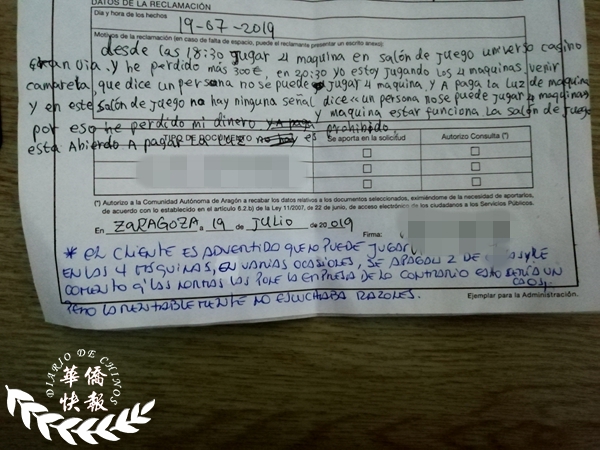 DATOS DE LA RECLAMACIÓN
Día y hora de los hechos
19-07-2019
Motivos de la reclamación (en caso de falta de espacio, puede el reclamante presentar un escrito anexo):
desde las 18:30 jugar 4 maquina en salón de juego universo casino
Gran Via. y he perdido más 300€, en 20:30 yo estoy jugando los 4 maquinas, venir
camareta, que dice un persona no se puede jugar 4 maquina, y A paga la luz de maquina
y en este salón de juego no hay ninguna señal dice "un persona nose puede jugar 4 maquinas
por eso he perdido mi dinero y maquina estar funciona La salón de juego
esta Abierdo A pagar es prohibido.
TIPO DE DOCUMENTO
Se aporta en la solicitud
Autorizo Consulta (*)
(*) Autorizo a la Comunidad Autónoma de Aragón a recabar los datos relativos a los documentos seleccionados, eximiéndome de la necesidad de aportarlos,
de acuerdo con lo establecido en el artículo 6.2.b) de la Ley 11/2007, de 22 de junio, de acceso electrónico de los ciudadanos a los Servicios Públicos.
En ZARAGOZA a 19 de JULIO de 20 019
Firma:
* EL CLIENTE ES ADVERTIDO QUE NO PUEDE JUGAR
EN LAS 4 MÁQUINAS, EN VARIAS OCASIONES, SE APAGAN 2 DE
COMENTO Q' LAS NORMAS LAS PONE LA EMPRESA DE LO CONTRARIO ESTO SERÍA UN
CAOS,
PERO LAMENTABLEMENTE NO ESCUCHABA RAZONES.
Ejemplar para la Administración.
DIARIO DE CHINOS
華僑
快報